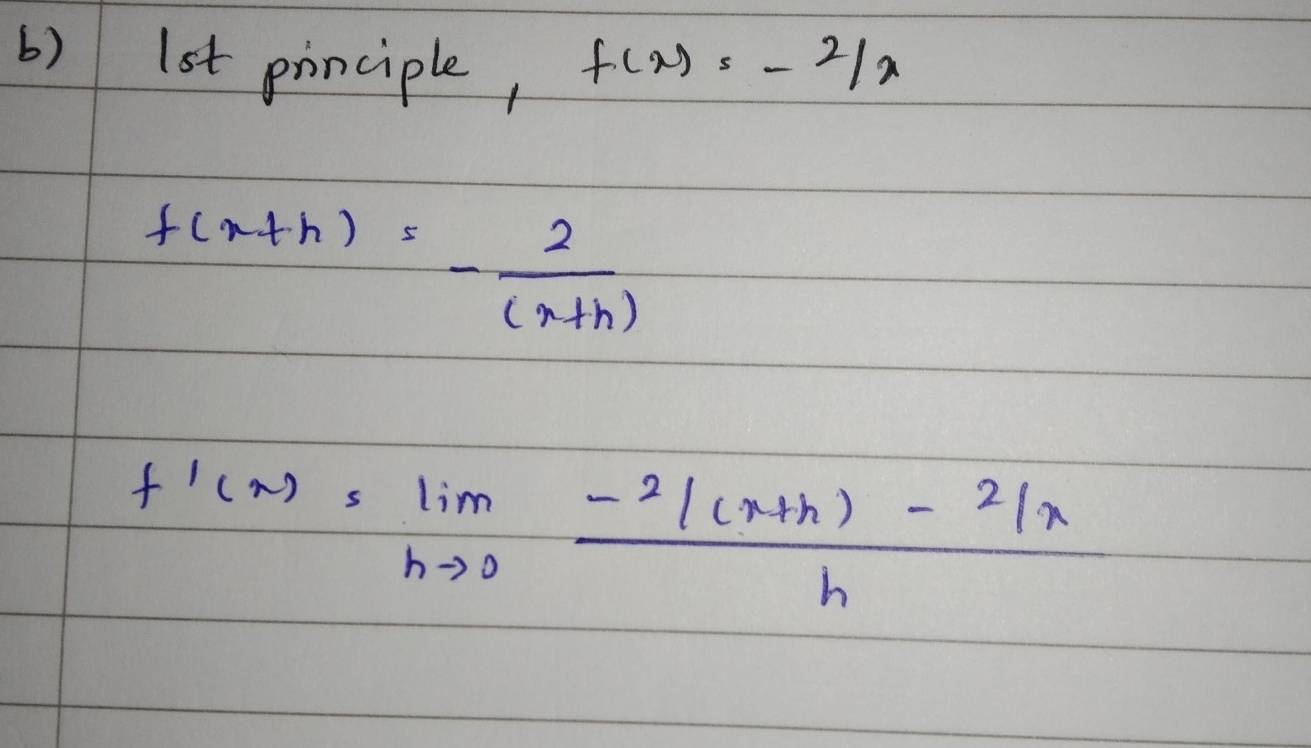 b) 1st principle, f(x) = - 2/x
f(x+h) = - 2
(x+h)
f'(x) = lim -2/(x+h) - 2/x
h→0 h